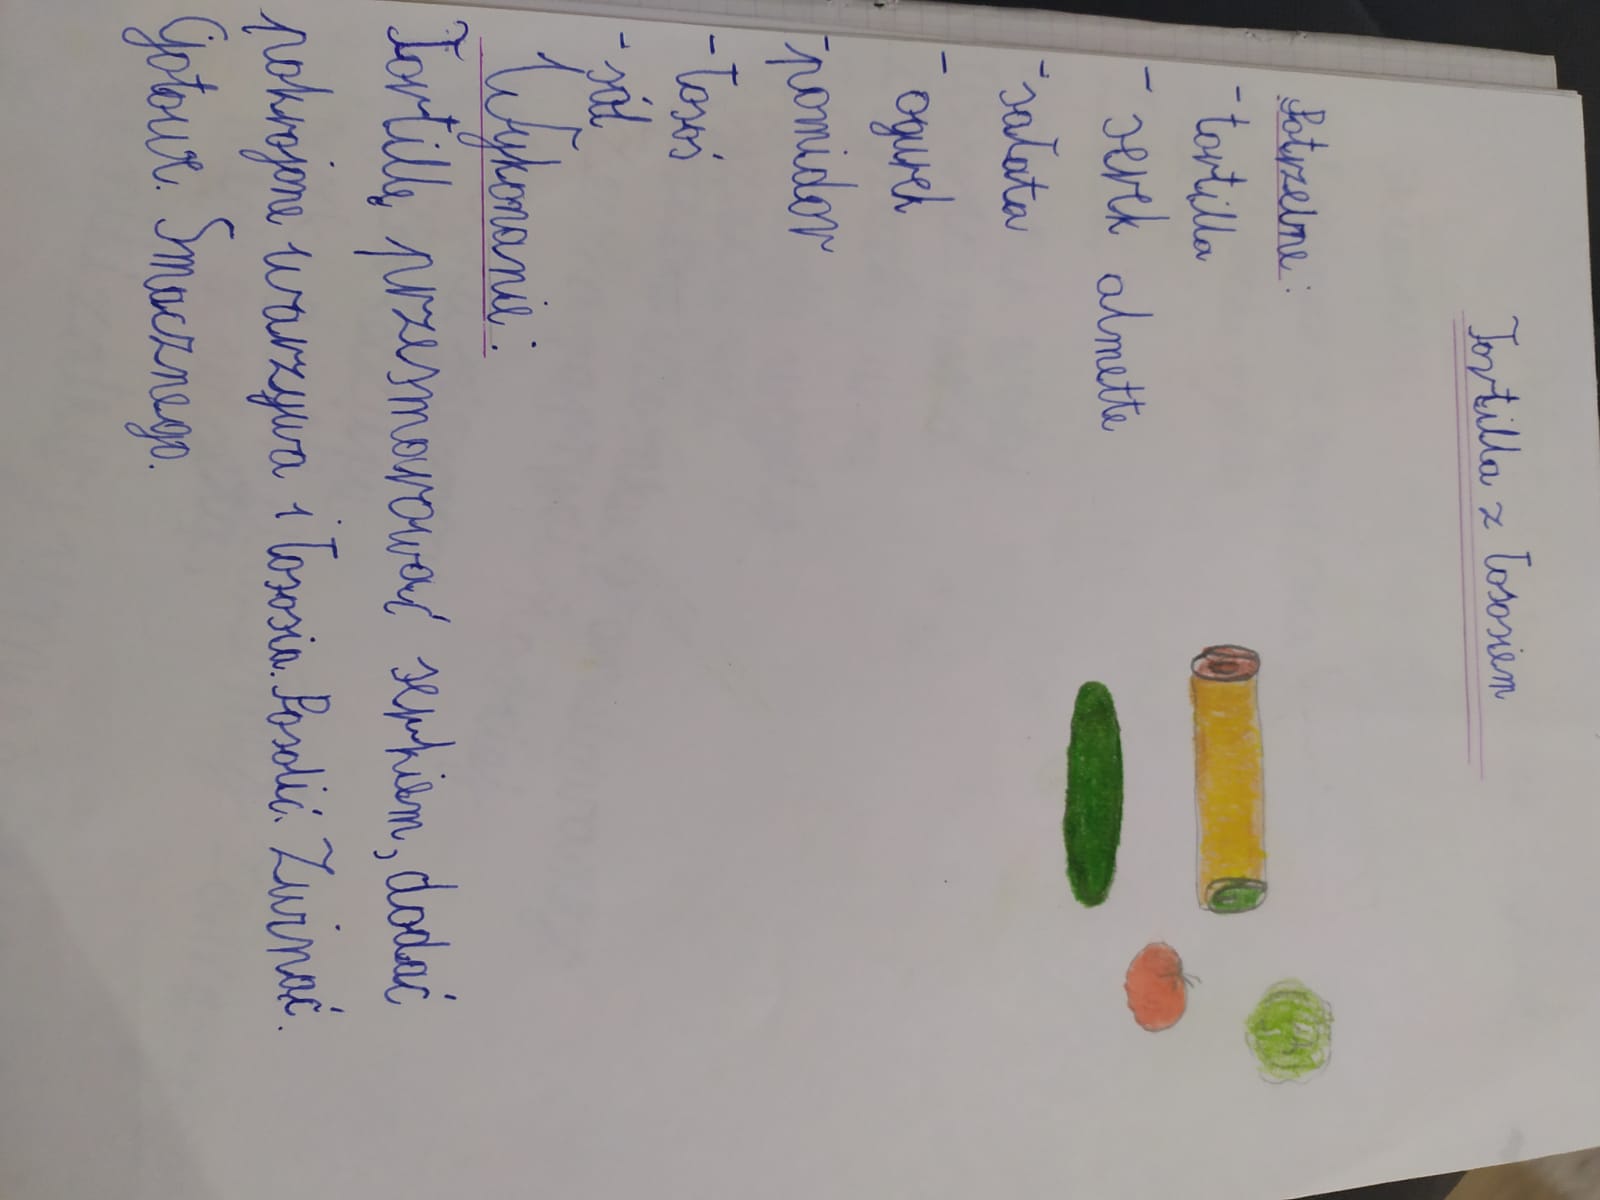 Tortilla z łososiem
Potrzebne:
- tortilla
- serek almette
- sałata
- ogurek
- pomidor
- łosoś
- sól
Wykonanie:
Tortillę przesmarować serkiem, dodać
pokrojone warzywa i łososia. Posolić. Zwinąć.
Gotowe. Smacznego.